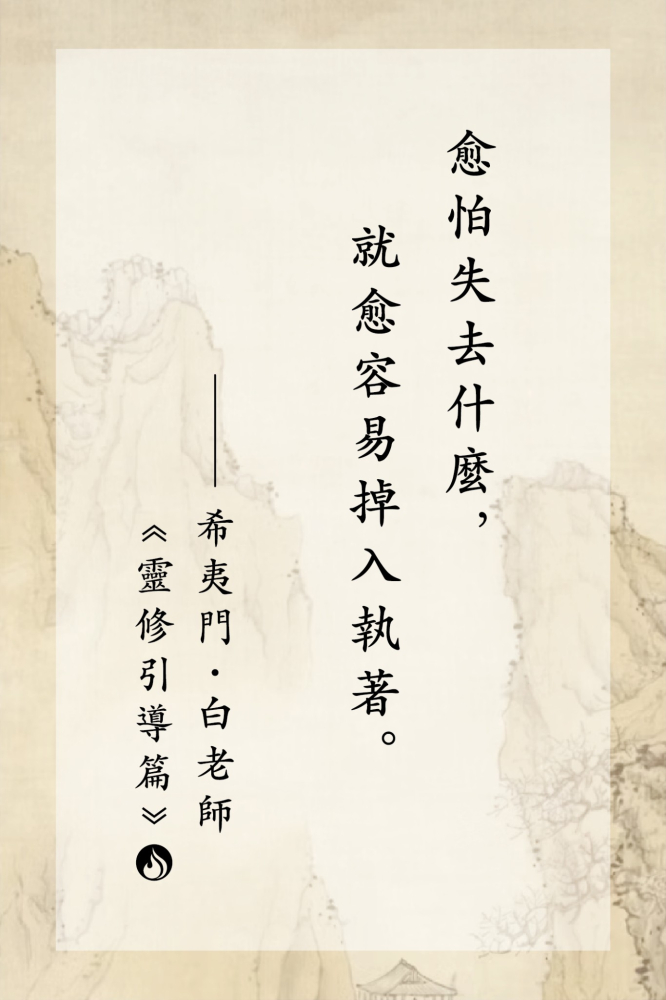 愈怕失去什麼，
就愈容易掉入執著。
——希夷門・白老師
《靈修引導篇》